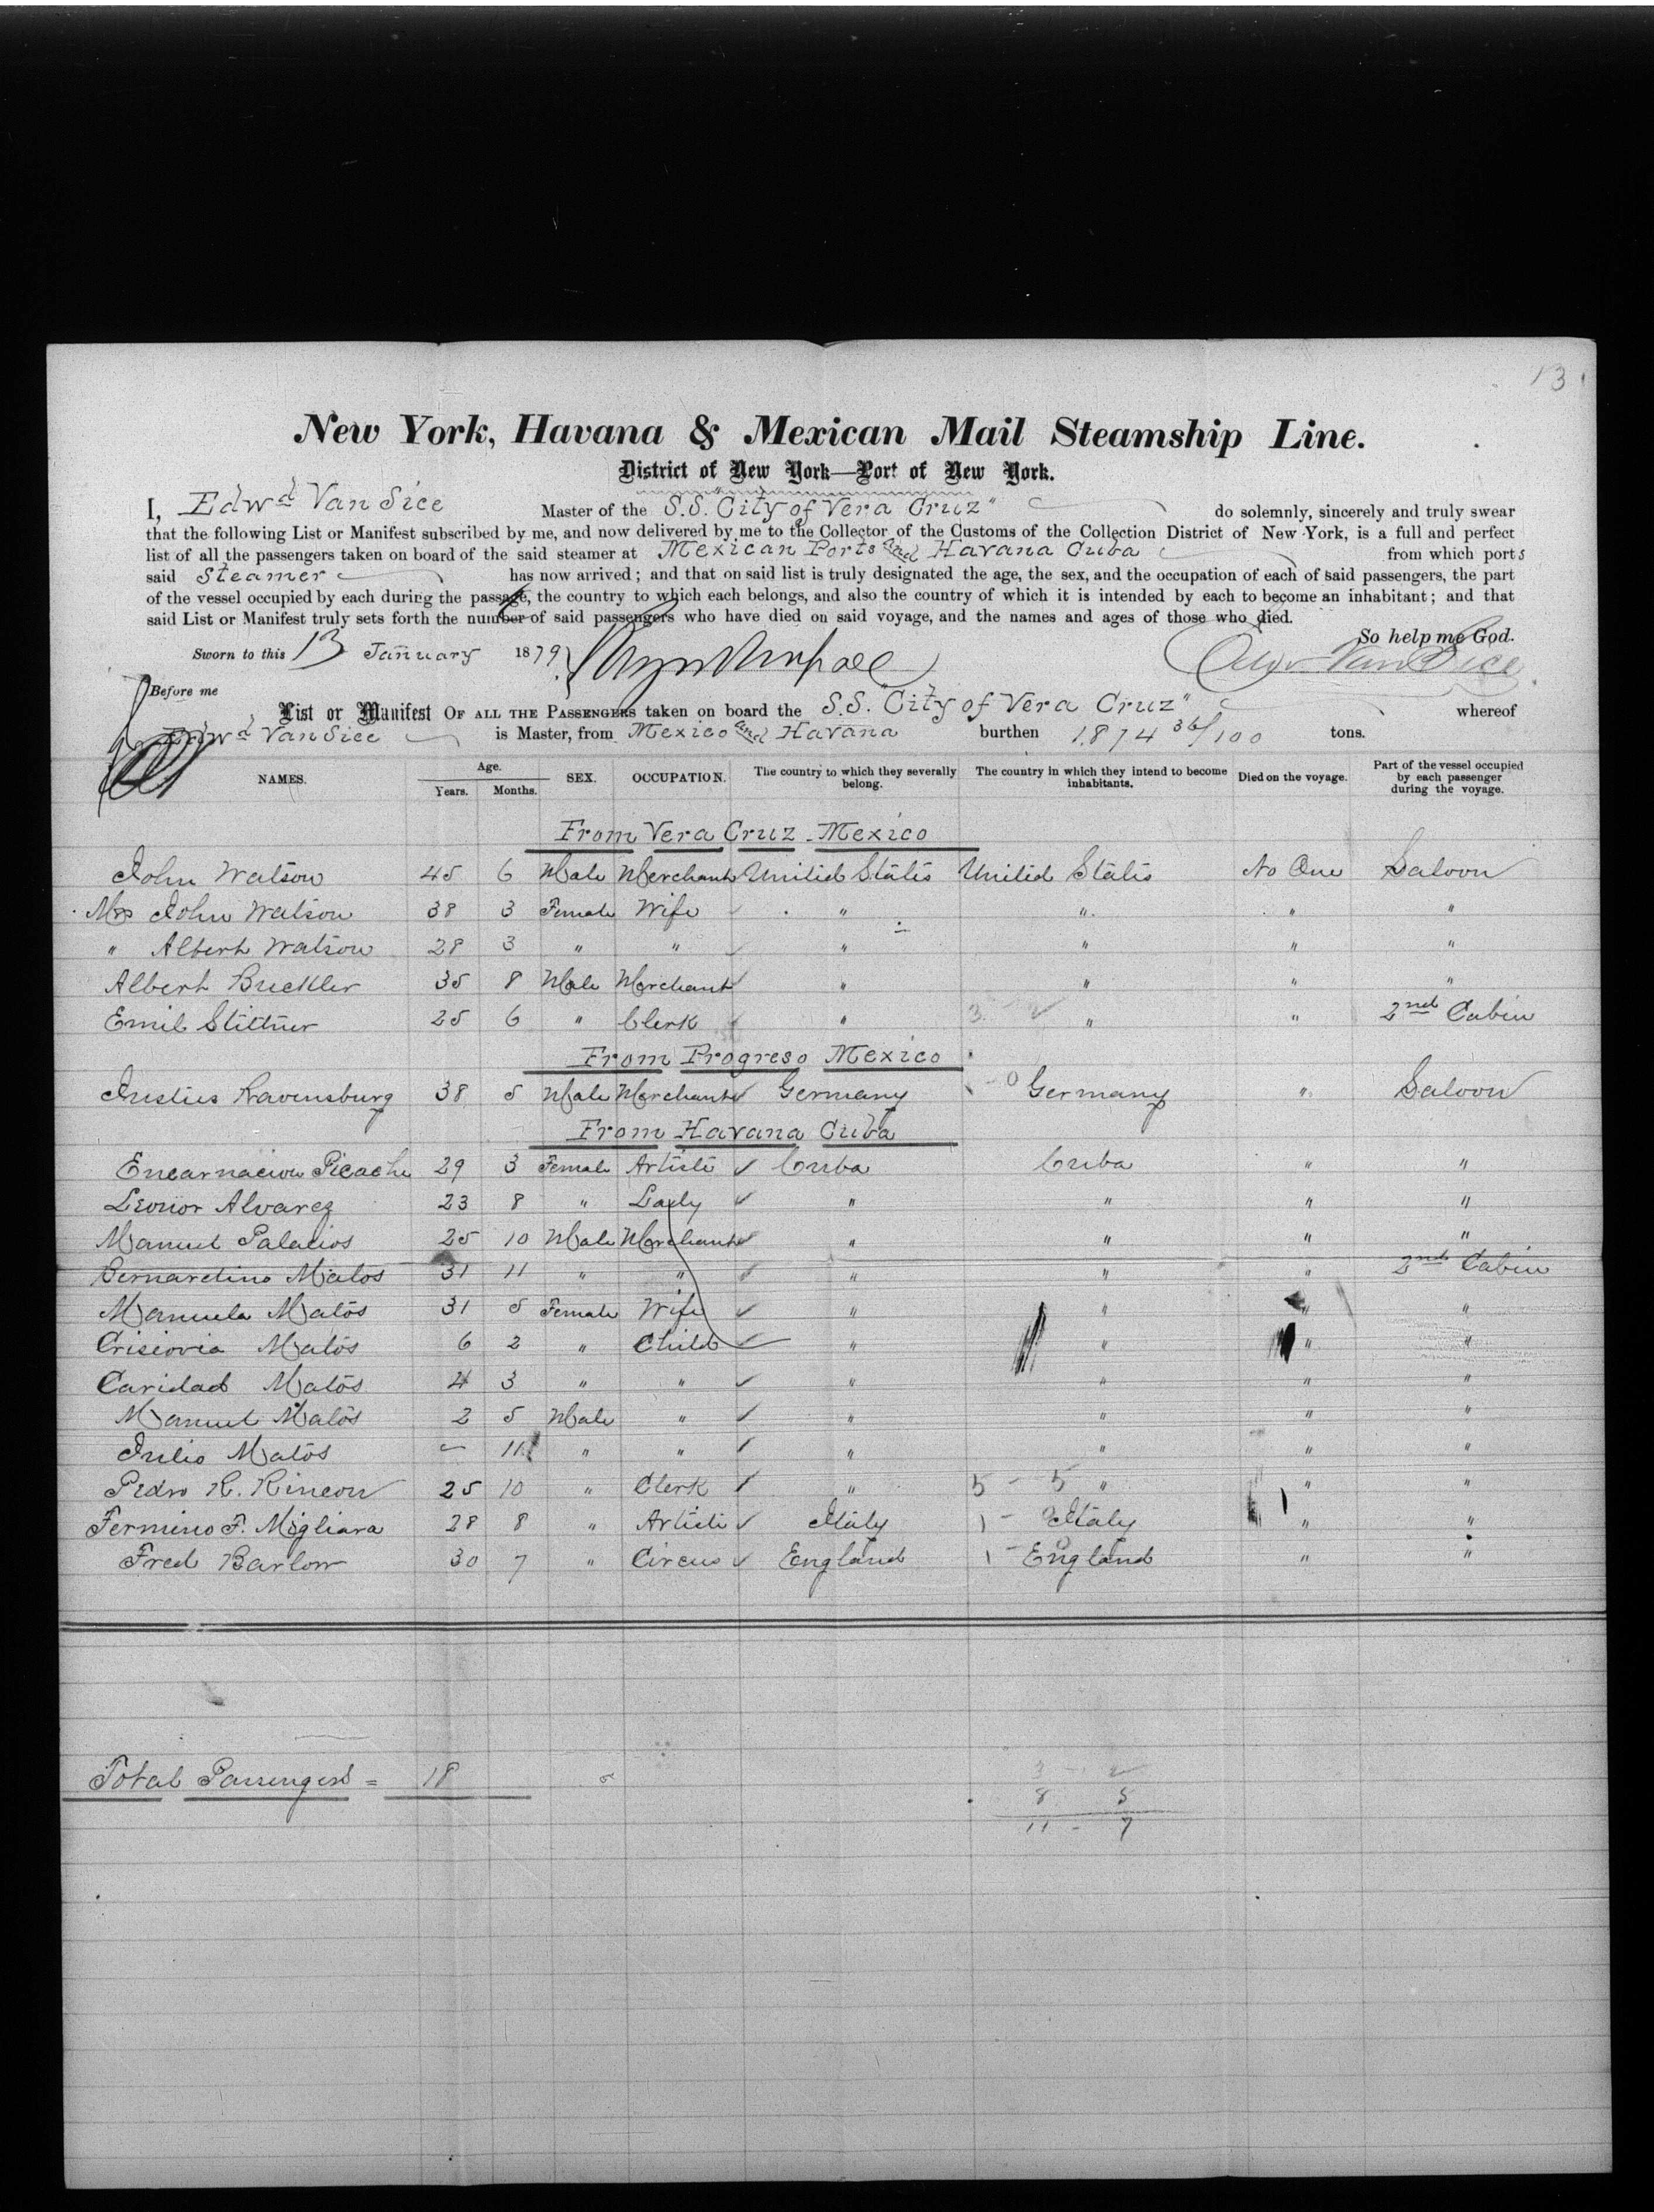 131
New York, Havana & Mexican Mail Steamship Line.
District of New York—Port of New York.
I, Edwd Van Sice Master of the S.S. "City of Vera Cruz" do solemnly, sincerely and truly swear
that the following List or Manifest subscribed by me, and now delivered by me to the Collector of the Customs of the Collection District of New York, is a full and perfect
list of all the passengers taken on board of the said steamer at Mexican Ports and Havana Cuba from which ports
said Steamer has now arrived; and that on said list is truly designated the age, the sex, and the occupation of each of said passengers, the part
of the vessel occupied by each during the passage, the country to which each belongs, and also the country of which it is intended by each to become an inhabitant; and that
said List or Manifest truly sets forth the number of said passengers who have died on said voyage, and the names and ages of those who died.
So help me God.
Sworn to this 13 January 1879 Edwd Van Sice
Before me
List or Manifest OF ALL THE PASSENGERS taken on board the S.S. "City of Vera Cruz" whereof
Edwd Van Sice is Master, from Mexico and Havana burthen 1,874 36/100 tons.
NAMES. Age. Years. Months. SEX. OCCUPATION. The country to which they severally belong. The country in which they intend to become inhabitants. Died on the voyage. Part of the vessel occupied by each passenger during the voyage.
From Vera Cruz Mexico
John Watson 45 6 Male Merchant United States United States No One Saloon
Mrs John Watson 38 3 Female Wife " " " "
" Albert Watson 28 3 " " " " " "
Albert Buckler 35 8 Male Merchant " " " "
Emil Stittner 25 6 " Clerk " 3 - 2 " " 2nd Cabin
From Progreso Mexico
Justus Ravensburg 38 5 Male Merchant Germany 1 - 0 Germany " Saloon
From Havana Cuba
Encarnacion Picache 29 3 Female Artiste Cuba Cuba " "
Leonor Alvarez 23 8 " Lady " " " "
Manuel Palacios 25 10 Male Merchant " " " "
Bernardino Matos 31 11 " " " " " 2nd Cabin
Manuela Matos 31 5 Female Wife " " " "
Crisiovia Matos 6 2 " Child " " " "
Caridad Matos 4 3 " " " " " "
Manuel Matos 2 5 Male " " " " "
Julio Matos - 11 " " " " " "
Pedro R. Rincon 25 10 " Clerk " 5 - 5 " " "
Fermino F. Migliara 28 8 " Artiste Italy 1 - Italy " "
Fred Barlow 30 7 " Circus England 1 - England " "
Total Passengers = 18
3 - 2
8 5
11 - 7